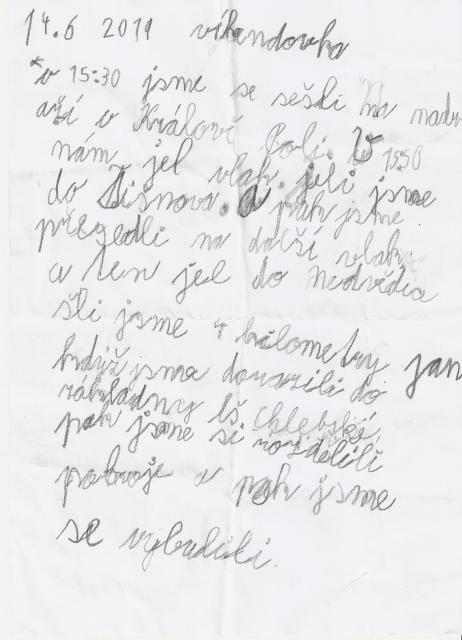 14.6 2011 víkendovka
*v 15:30 jsme se sešli na nadr
aží v Králově Poli. V 1550
nám jel vlak. jeli jsme
do Tišnova. a pak jsme
přesedli na další vlak
a ten jel do Nedvědic
šli jsme 4 kilometry
když jsme dorazili do
základny LŠ chlebské,
pak jsme si rozdělili
pokoje a pak jsme
se vybalili.